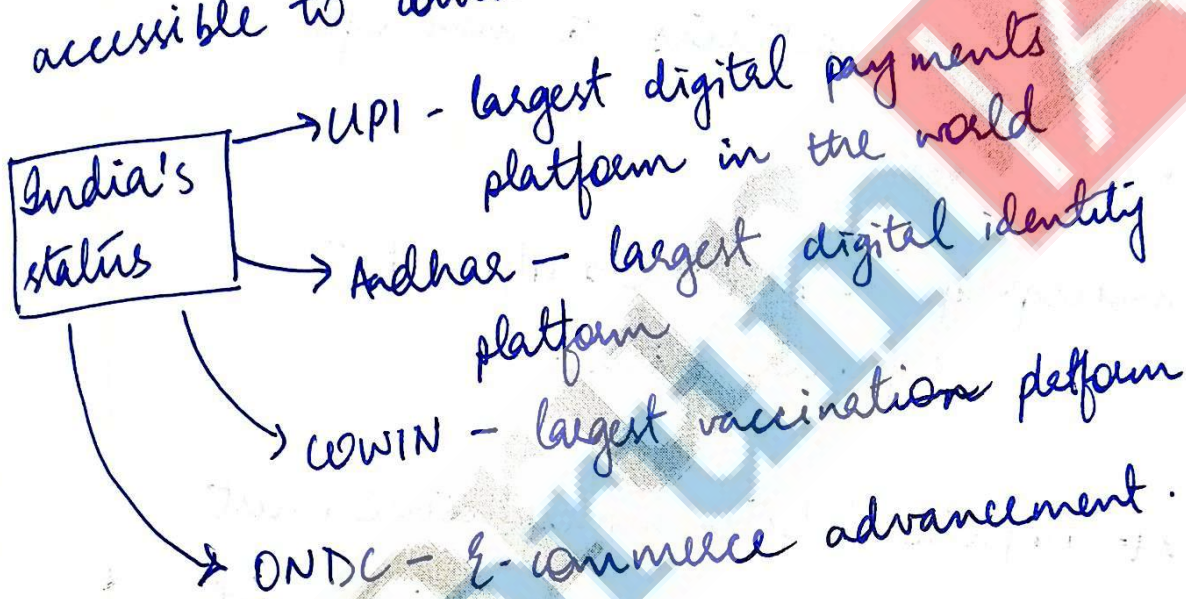 accessible to
India's
status
UPI - largest digital payments
platform in the world
Aadhar - largest digital identity
platform
COWIN - largest vaccination platform
ONDC - E-commerce advancement.